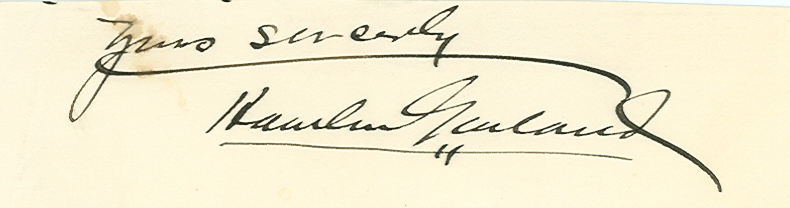 Yours sincerely
Hamlin Garland